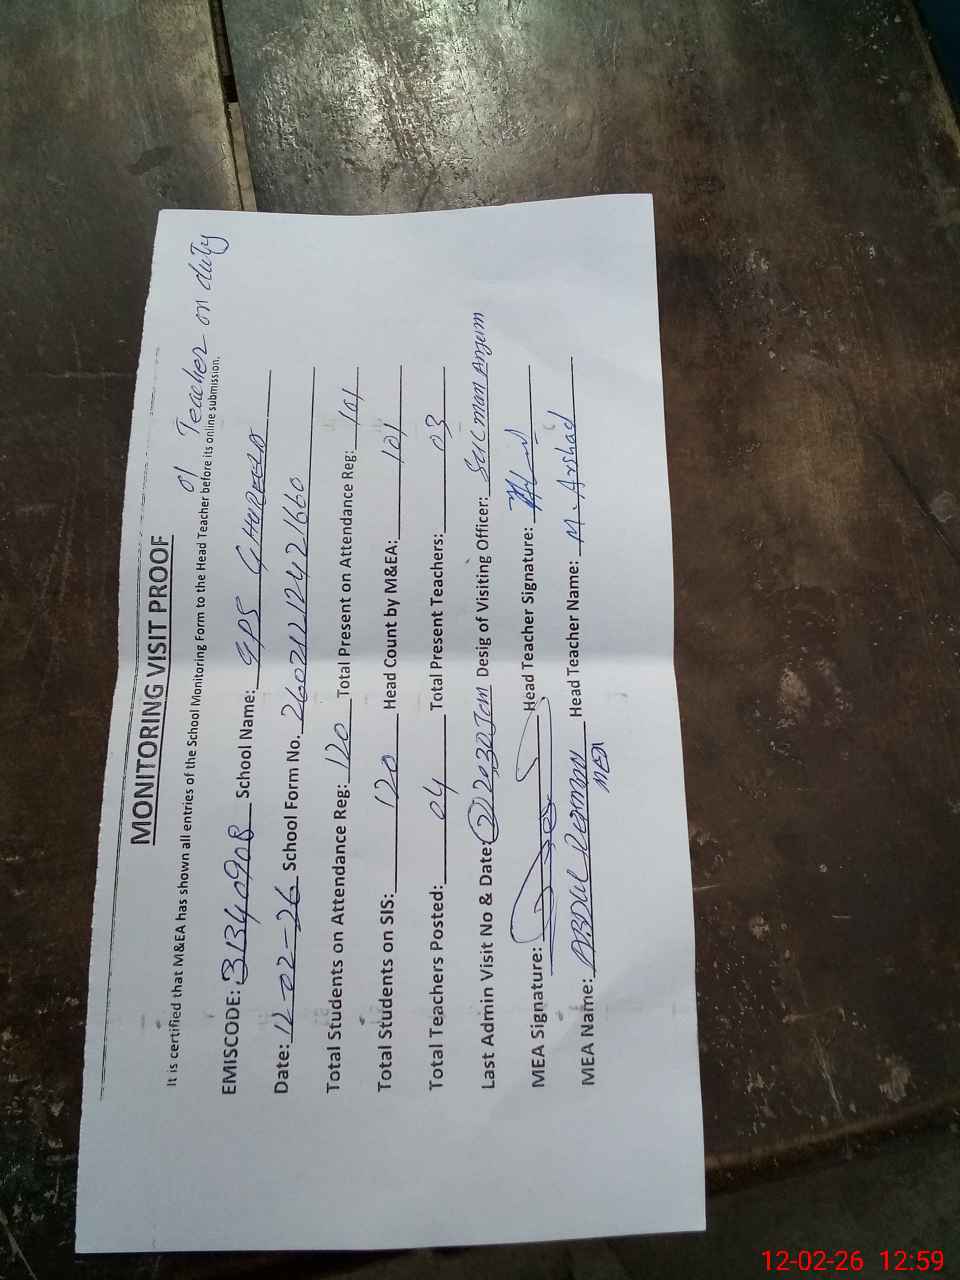 MONITORING VISIT PROOF
01 Teacher on duty
It is certified that M&EA has shown all entries of the School Monitoring Form to the Head Teacher before its online submission.
EMISCODE: 31340908 School Name: GPS
Date: 12-02-26 School Form No. 26021212421660
Total Students on Attendance Reg: 120 Total Present on Attendance Reg: 101
Total Students on SIS: 120 Head Count by M&EA: 101
Total Teachers Posted: 04 Total Present Teachers: 03
Last Admin Visit No & Date: Desig of Visiting Officer: Anjum
MEA Signature: Head Teacher Signature:
MEA Name: ABDUL Rehman Head Teacher Name: M. Arshad
MEA
12-02-26 12:59